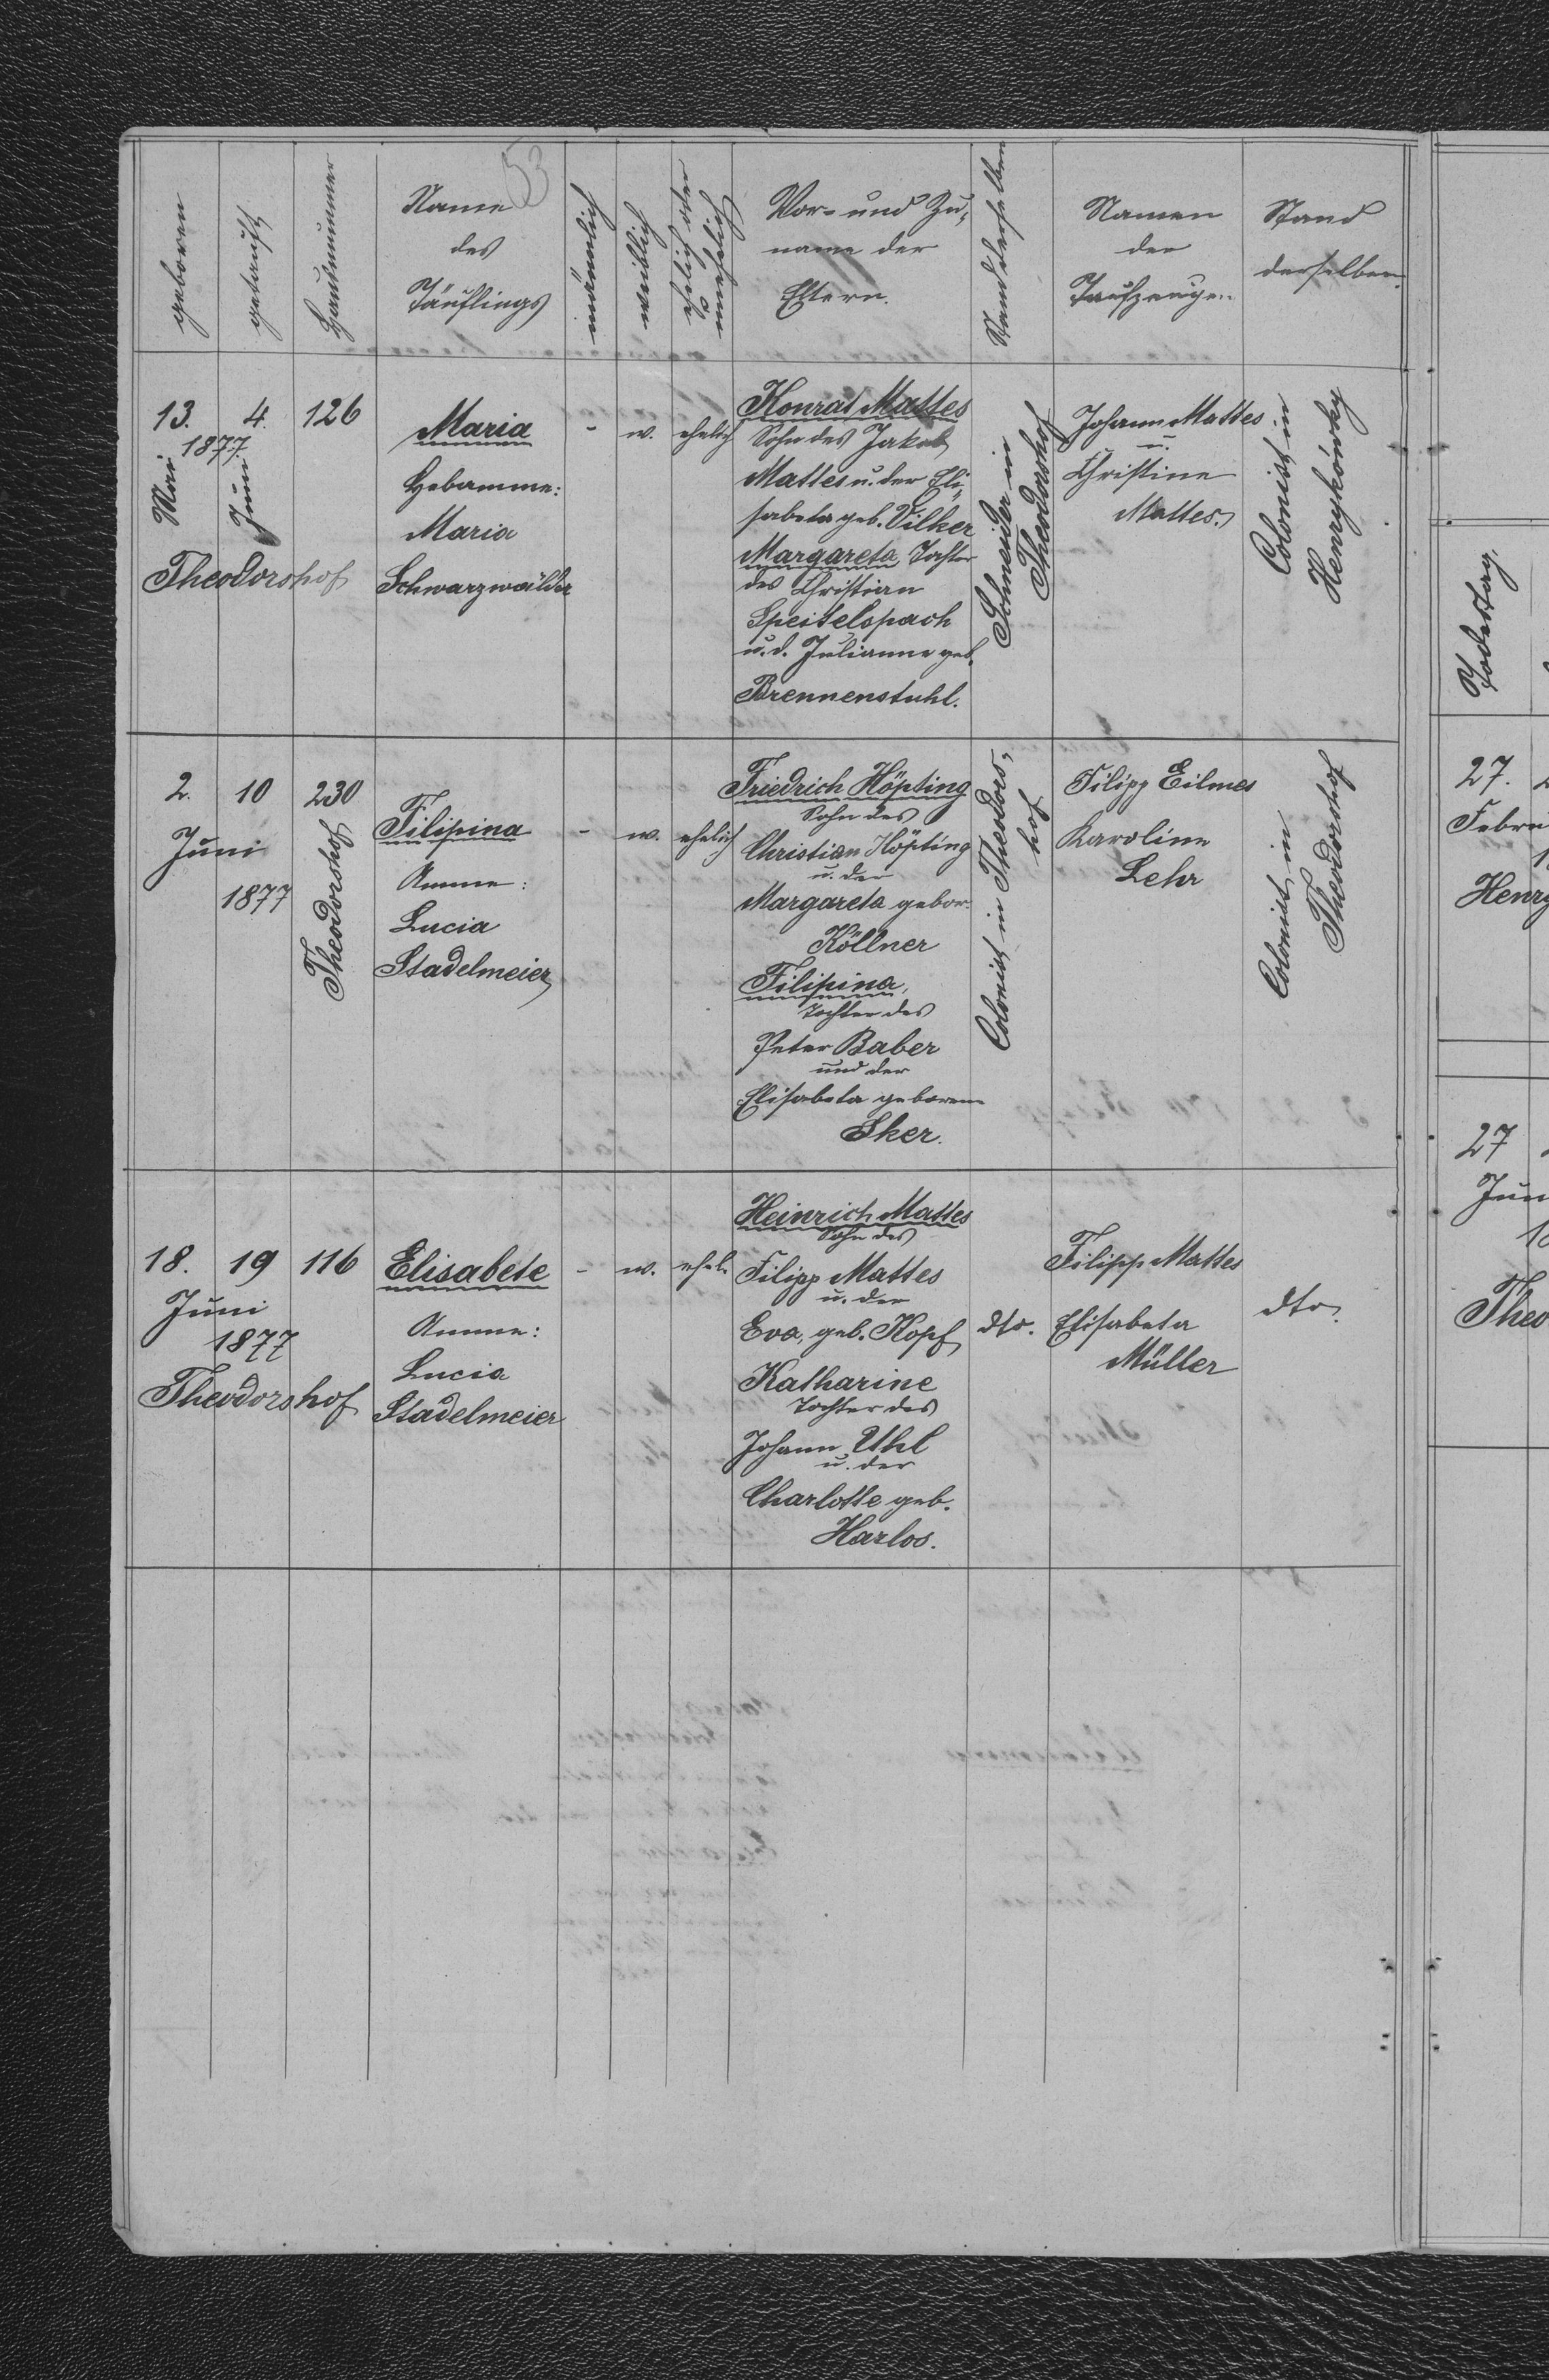 53
geboren
getauft
Hausnummer
Name
des
Täuflings
männlich
weiblich
ehelich oder
unehelich
Vor- und Zu-
name der
Eltern.
Stand derselben
Namen
der
Taufzeugen
Stand
derselben.
13. 4. 126
1877
Mai Juni
Theodorshof
Maria
Hebamme:
Maria
Schwarzwälder
- w. ehelich
Konrad Mattes
Sohn des Jakob
Mattes u. der Eli-
sabeta geb. Vilker
Margareta Tochter
des Christian
Speitelspach
u. d. Julianne geb.
Brennenstuhl.
Schneider in
Theodorshof
Johann Mattes
u.
Christine
Mattes.
Colonist in
Henrykówky
2. 10 230
Juni
1877
Theodorshof
Filipina
Amme:
Lucia
Stadelmeier
- w. ehelich
Friedrich Höpting
Sohn des
Christian Höpting
u. der
Margareta gebor.
Köllner
Filipina,
Tochter des
Peter Baber
und der
Elisabeta geborene
Sker.
Colonist in Theodors-
hof
Filipp Eilmes
Karoline
Lehr
Colonist in
Theodorshof
18. 19 116
Juni
1877
Theodorshof
Elisabete
Amme:
Lucia
Stadelmeier
- w. ehel.
Heinrich Mattes
Sohn des
Filipp Mattes
u. der
Eva, geb. Kopf
Katharine
Tochter des
Johann Uhl
u. der
Charlotte geb.
Harlos.
dto.
Filipp Mattes
Elisabeta
Müller
dto.
Todestag,
27.
Febru
Henry
27
Jun
Theo